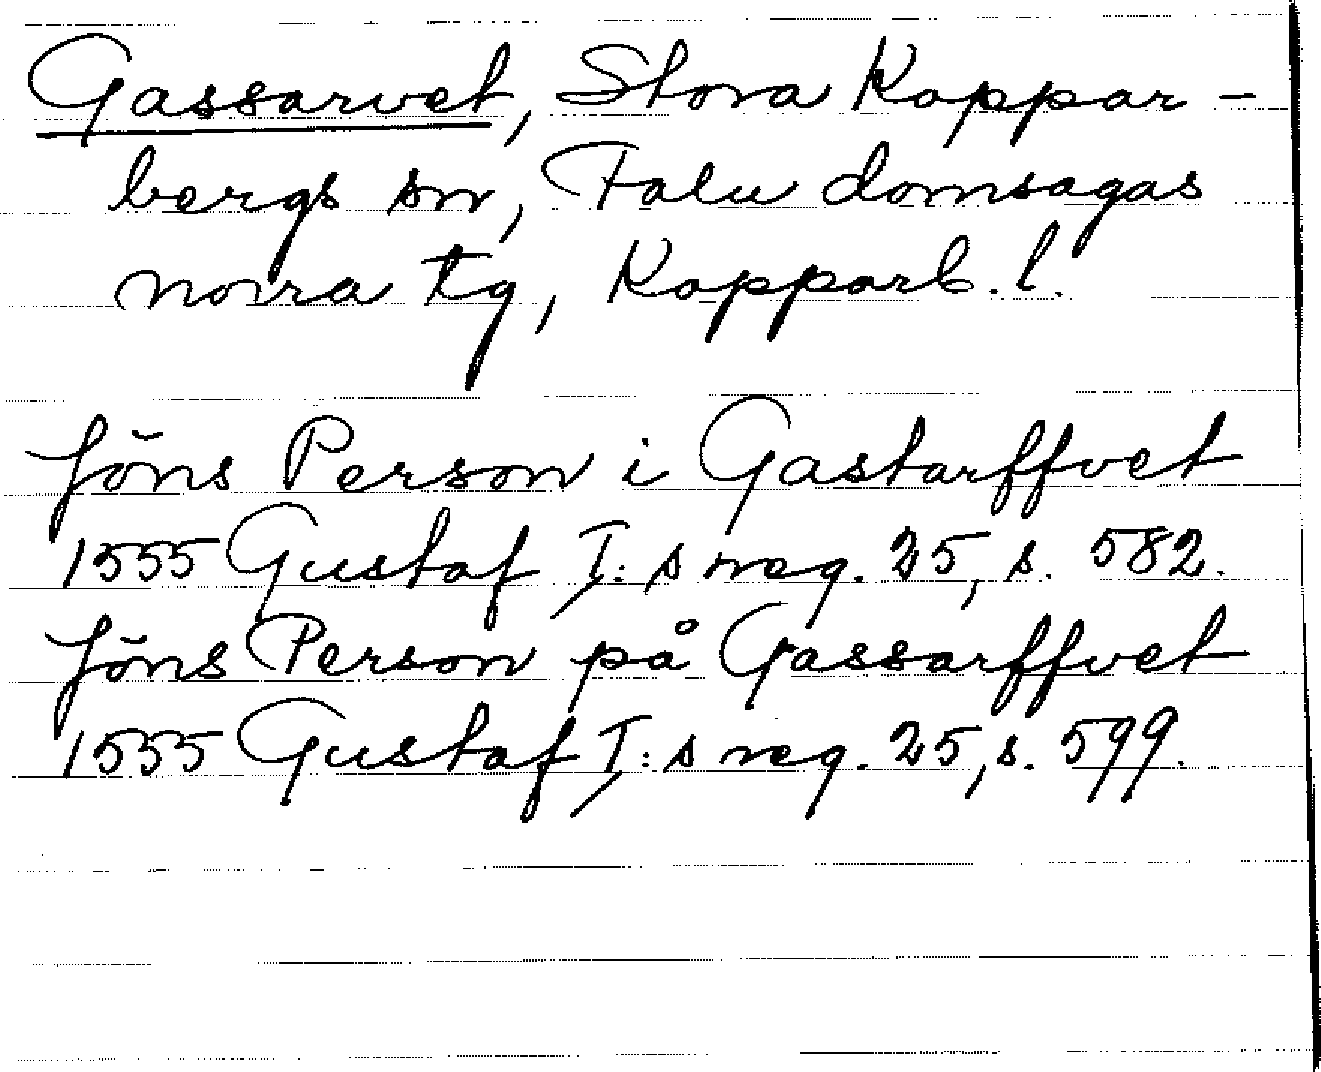 Gassarvet, Stora Koppar-
bergs sn, Falu domsagas
norra tg, Kopparb. l.
Jöns Person i Gastarffvet
1555 Gustaf I:s reg. 25, s. 582.
Jöns Person på Gassarffvet
1555 Gustaf I:s reg. 25, s. 599.